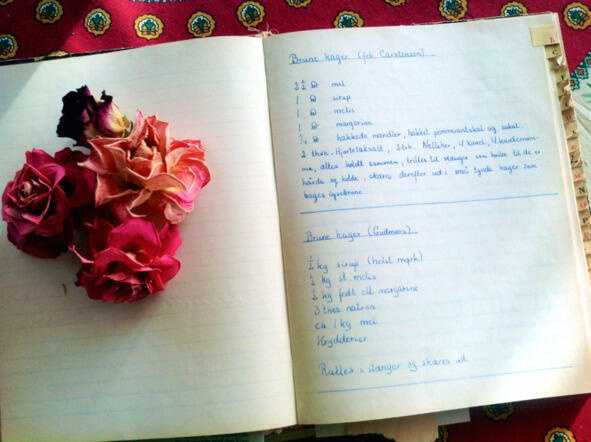 Brune kager (frk Carstensen)
2 1/2 ℔ mel
1 ℔ sirup
1 ℔ melis
1 ℔ margarine
1/4 ℔ hakkede mandler, hakket pommerantskal og sukat.
2 thes. Hjortetaksalt, 2 tsk. Nelliker, 4 kanel, 4 kardemom-
me, alles koldt sammen, trilles til stænger som hviler til de er
hårde og kolde, skæres derefter ud i små tynde kager som
bages lysebrune.
Brune kager (Gudmors)
1/2 kg sirup (helst mørk)
1/2 kg st. melis
1/2 kg fedt ell margarine
3 thes natron
ca 1 kg mel
Krydderier
Rulles i stænger og skæres ud.